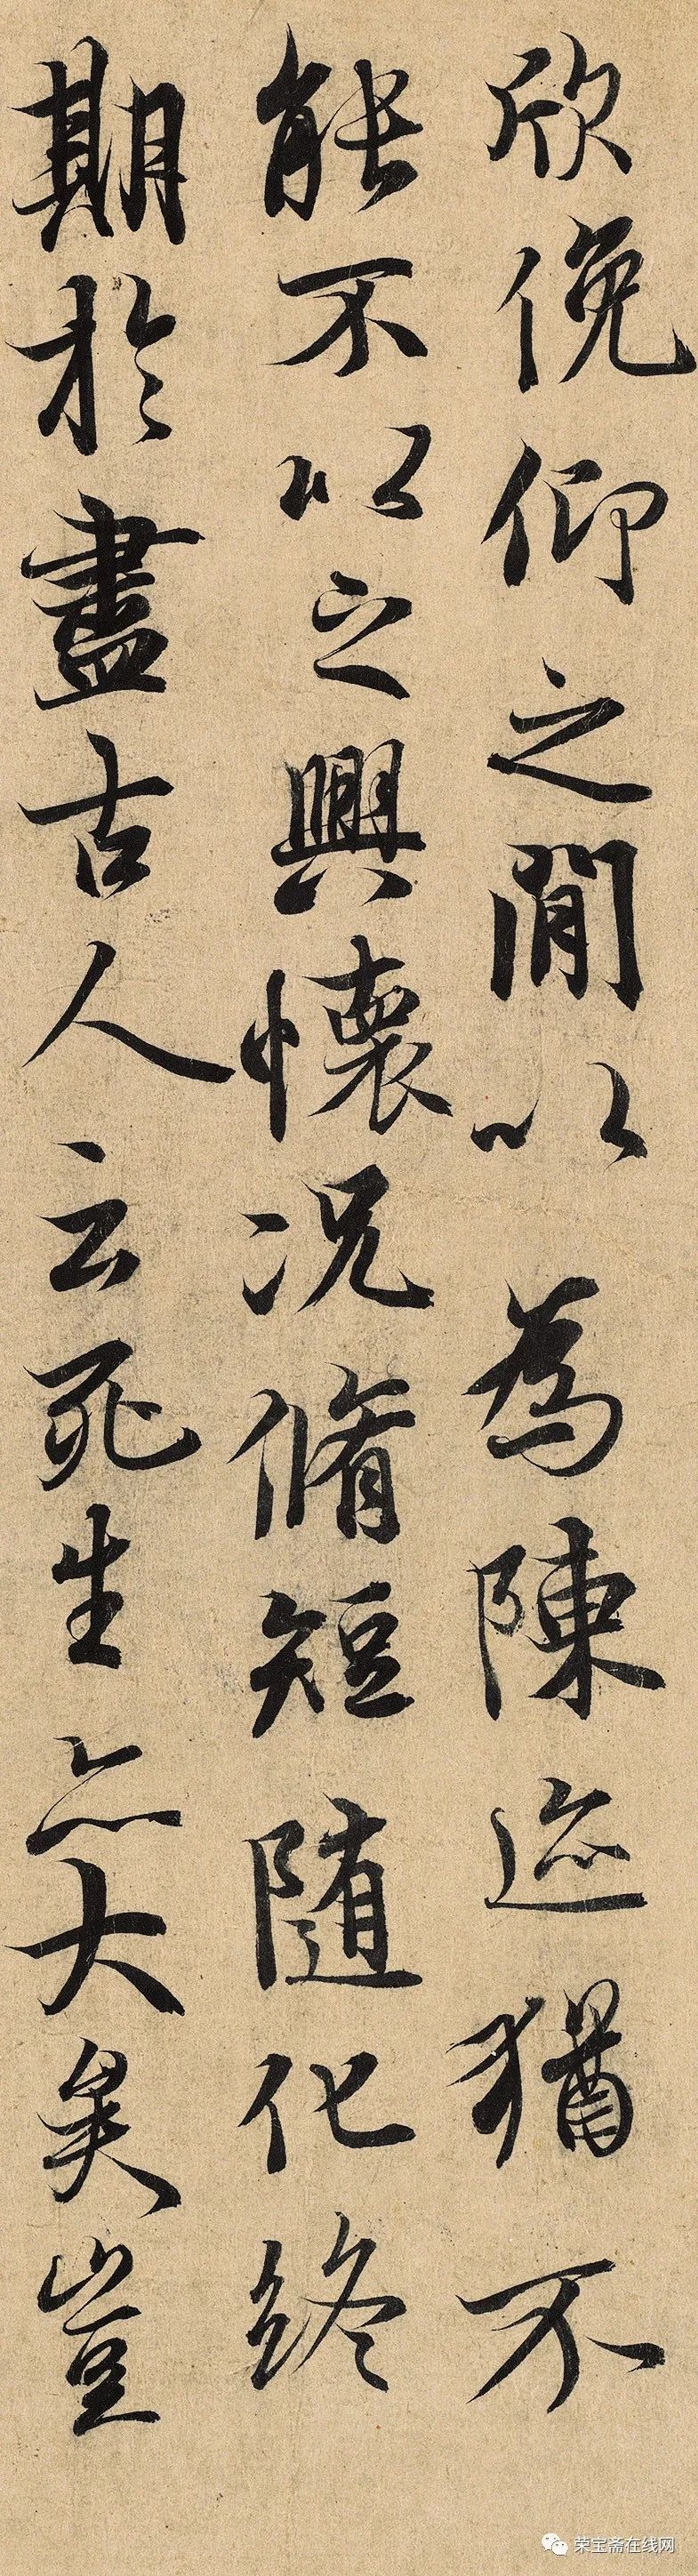 欣俛仰之間以為陳迹猶不
能不以之興懷况脩短随化終
期於盡古人云死生亦大矣豈
荣宝斋在线网